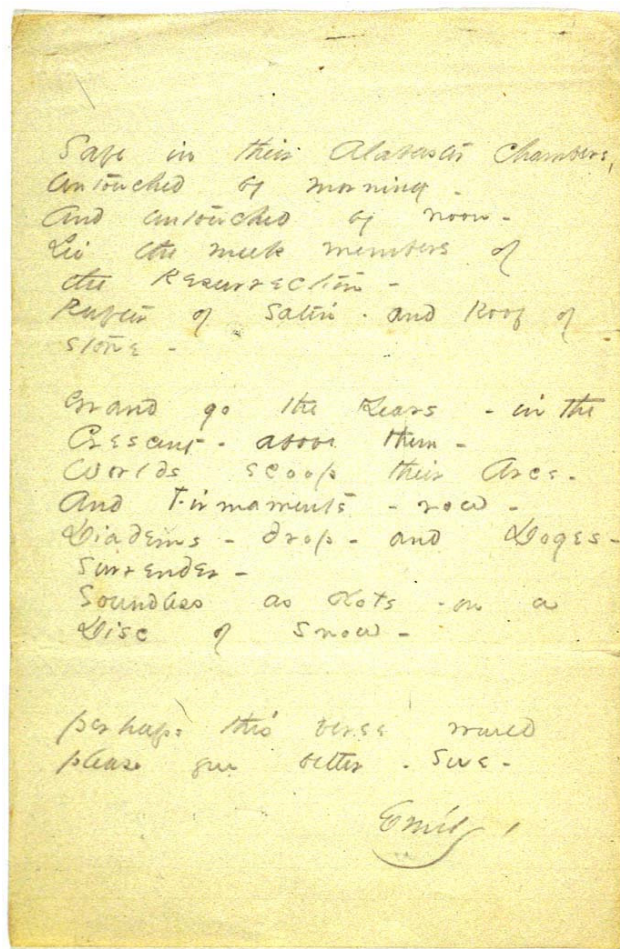 Safe in their Alabaster Chambers,
Untouched of morning -
And untouched of noon -
Lie the meek members of
the Resurrection -
Rafter of Satin - and Roof of
Stone -
Grand go the Years - in the
Crescent - above them -
Worlds scoop their Arcs -
And Firmaments - row -
Diadems - drop - and Doges -
Surrender -
Soundless as dots - on a
Disc of Snow -
perhaps this verse would
please you better - Sue -
Emily -